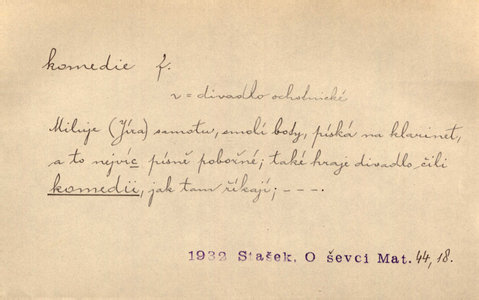 komedie f.
v = divadlo ochotnické
Miluje (Jíra) samotu, smolí boty, píská na klarinet,
a to nejvíc písně pobožné; také hraje divadlo čili
komedii, jak tam říkají; – – –.
1932 Stašek, O ševci Mat. 44, 18.